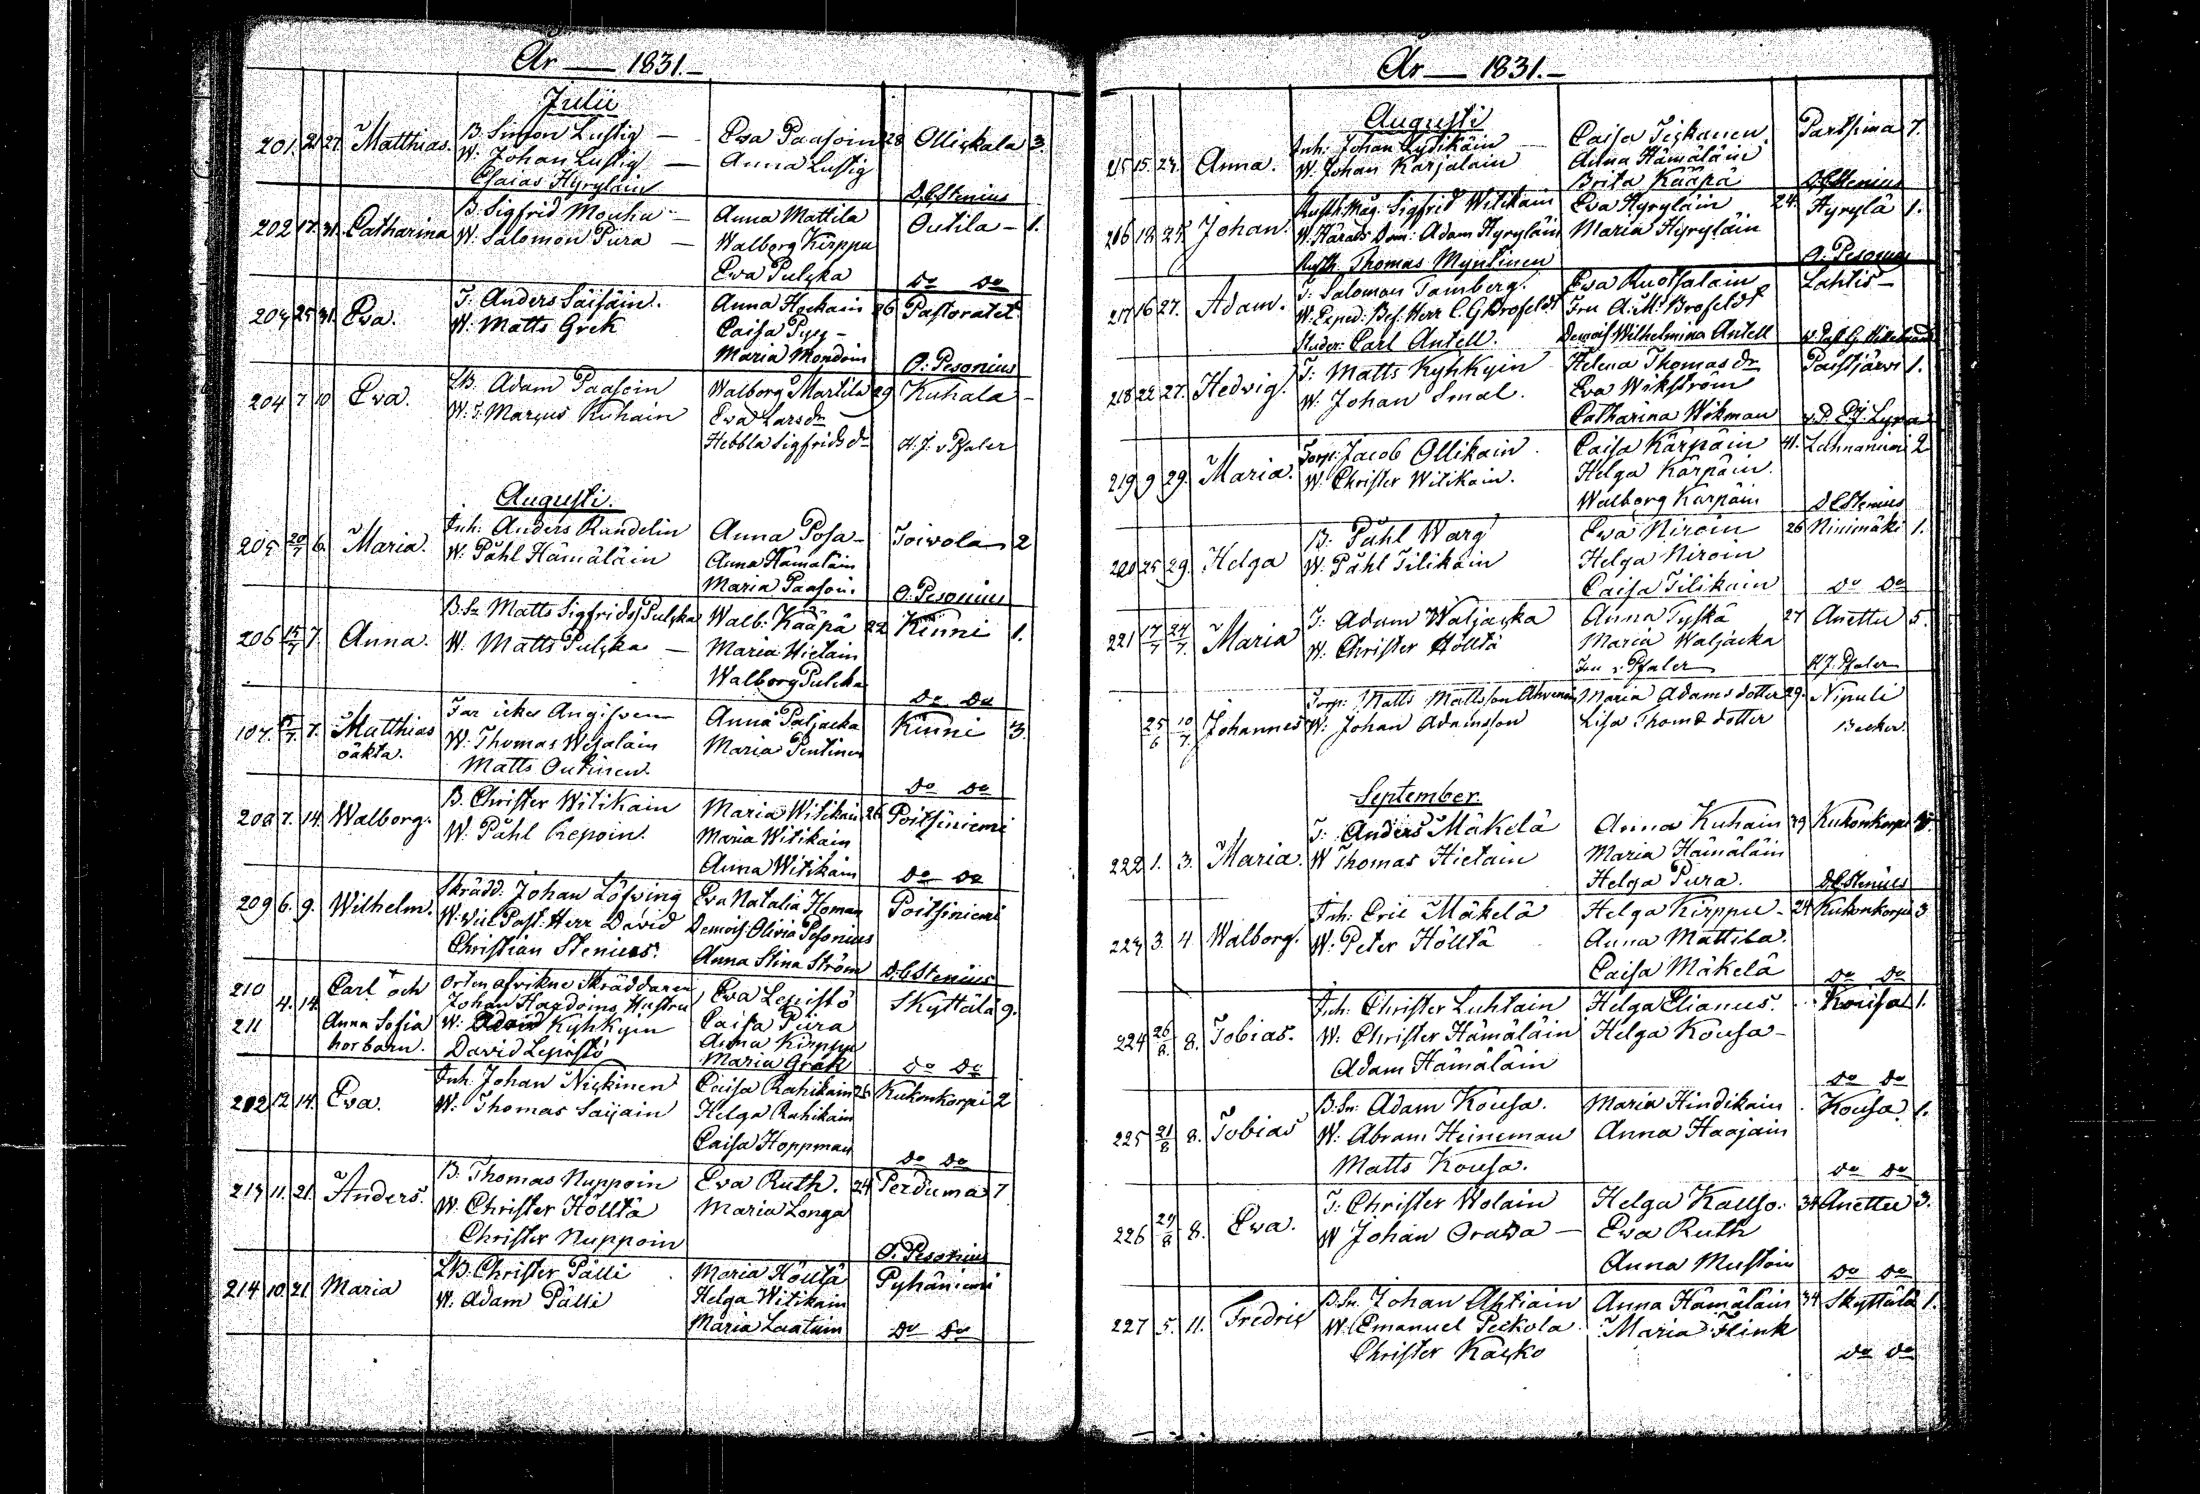 År — 1831.—
Julii
201. 21 27. Matthias. B. Simon Lustig — Eva Paasoin 28 Ollickala 3.
W. Johan Lustig — Anna Lustig
Esaias Hyryläin D. C. Stenius
202 17. 31. Catharina B. Sigfrid Mouhu — Anna Mattila Outila — 1.
W. Salomon Pura — Walborg Kirppu
Eva Pulcka Do Do
203 25 31. Eva. T. Anders Säisäin. Anna Hockain 26 Pastoratet
W. Matts Grek Caisa
Maria Mondoin O. Pesonius
204 7 10 Eva. Adam Paasoin Walborg Martila 29 Kuhala —
W. T. Marcus Kuhain Eva Larsdr
Hebbla Sigfridsdr H. J. v Pfaler
Augusti.
205 20/7 6. Maria. Inh. Anders Randelin Anna Posa — Toivola 2
W. Påhl Hämäläin Anna Hämäläin
Maria Paasoin. O. Pesonius
206 15/7 7. Anna. B. Sn Matts Sigfridss Pulcka Walb. Kääpä 22 Kinni 1.
W. Matts Pulcka — Maria Hietain
Walborg Pulcka Do Do
107. 7. Matthias Far ickes Angifven Anna Paljacka Kinni 3.
oäkta. W. Thomas Wesaläin Maria Pentinen
Matts Outinen. Do Do
208 7. 14. Walborg. B. Christer Witikain Maria Witikain 26 Poitsiniemi
W. Påhl Repoin. Maria Witikain
Anna Witikain Do Do
209 6. 9. Wilhelm. Skrädd. Johan Löfving Eva Natalia Homan Poitsiniemi
W. Vice Past. Herr David Demois. Olivia Pesonius
Christian Stenius. Anna Stina Ström D. C. Stenius
210 4. 14. Carl och Orten afvikne Skräddaren Eva Lepistö Skyttälä 9.
Johan Hagdoins Hustru
211 Anna Sofia W. Kyhkyin Caisa Pura
horbarn. David Lepistö Anna Kirppu
Maria Grak Do Do
212 12 14. Eva. Inh. Johan Nickinen Caisa Rahikain 25 Kukonkorpi 2
W. Thomas Saijain Helga Rahikain
Caisa Hoppman Do Do
213 11. 21. Anders. B. Thomas Nuppoin Eva Ruth. 24 Perduma 7
W. Christer Hölttä Maria Longa
Christer Nuppoin O. Pesonius
214 10 21 Maria Christer Pälli Maria Hölttä Pyhäniemi
W. Adam Pälli Helga Witikain
Maria Laatuin Do Do
År — 1831.—
Augusti
215 15. 24. Anna. Inh. Johan Lydikäin Caisa Tickanen Partsima 7.
W. Johan Karjalain Anna Hämäläin
Brita Kääpä D. C. Stenius
216 18. 25. Johan. Rusth. Måg. Sigfrid Witikain Eva Hyryläin 24. Hyrylä 1.
W. Härads Dom. Adam Hyryläin Maria Hyryläin
Rusth. Thomas Myntinen O. Pesonius
217 16 27. Adam. T. Salomon Tamberg. Eva Ruotsalain Lahtis —
W. Exped. Bef. Herr C. G. Brofeldt Fru A. M. Brofeldt
Studer. Carl Antell. Demois Wilhelmina Antell
218 22 27. Hedvig. T. Matts Kyhkyin Helena Thomasdr Paistjärvi 1.
W. Johan Smal. Eva Wikström
Catharina Wikman
219 9 29. Maria. Torp. Jacob Ollikain. Caisa Kärpäin 41. Lahnaniemi 2
W. Christer Witikain. Helga Kärpäin.
Walborg Kärpäin D C Stenius
220 25 29. Helga B. Påhl Warg Eva Niroin 26 Ninimäki 1.
W. Påhl Tilikain Helga Niroin
Caisa Tilikain Do Do
221 17/7 24/7. Maria T. Adam Waljacka Anna Tyskä 27 Anettu 5.
W. Christer Hölttä Maria Waljacka
Fru v. Pfaler H. J. Pfaler
25/6 10/7 Johannes Torp. Matts Mattsson Ahvenain Maria Adamsdotter 29. Nipuli
W. Johan Adamsson Lisa Thomædotter Becker.
September.
222 1. 3. Maria. T. Anders Mäkelä Anna Kuhain 29 Kukonkorpi
W Thomas Hietain Maria Hämäläin
Helga Pura. D. C. Stenius
223 3. 4 Walborg. Inh. Eric Mäkelä Helga Kirppu — 24 Kukonkorpi 3
W. Peter Hölttä Anna Mattila.
Caisa Mäkelä Do Do
224 26/8. 8. Tobias. Inh. Christer Luhtain Helga Elianus. Kousa 1.
W. Christer Hämäläin Helga Kousa —
Adam Hämäläin Do Do
225 21/8 8. Tobias B. Sn. Adam Kousa. Maria Hindikain Kousa 1.
W. Abram Heineman Anna Haajain
Matts Kousa. Do Do
226 29/8 8. Eva. T. Christer Wolain Helga Kauso. 34 Anettu 3.
W Johan Orava — Eva Ruth
Anna Mustoin Do Do
227 5. 11. Fredric B. Sn. Johan Ahtiain Anna Hämäläin 34 Skyttälä 1.
W. Emanuel Peckola Maria Flink
Christer Käcko Do Do